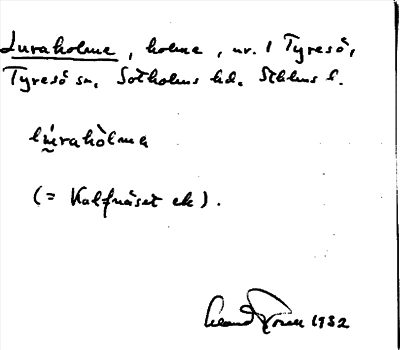 Luraholme, holme, nr. 1 Tyresö,
Tyresö sn, Sotholms hd. Sthlms l.
lúrahòlma
(= Kalfnäset ek).
1932